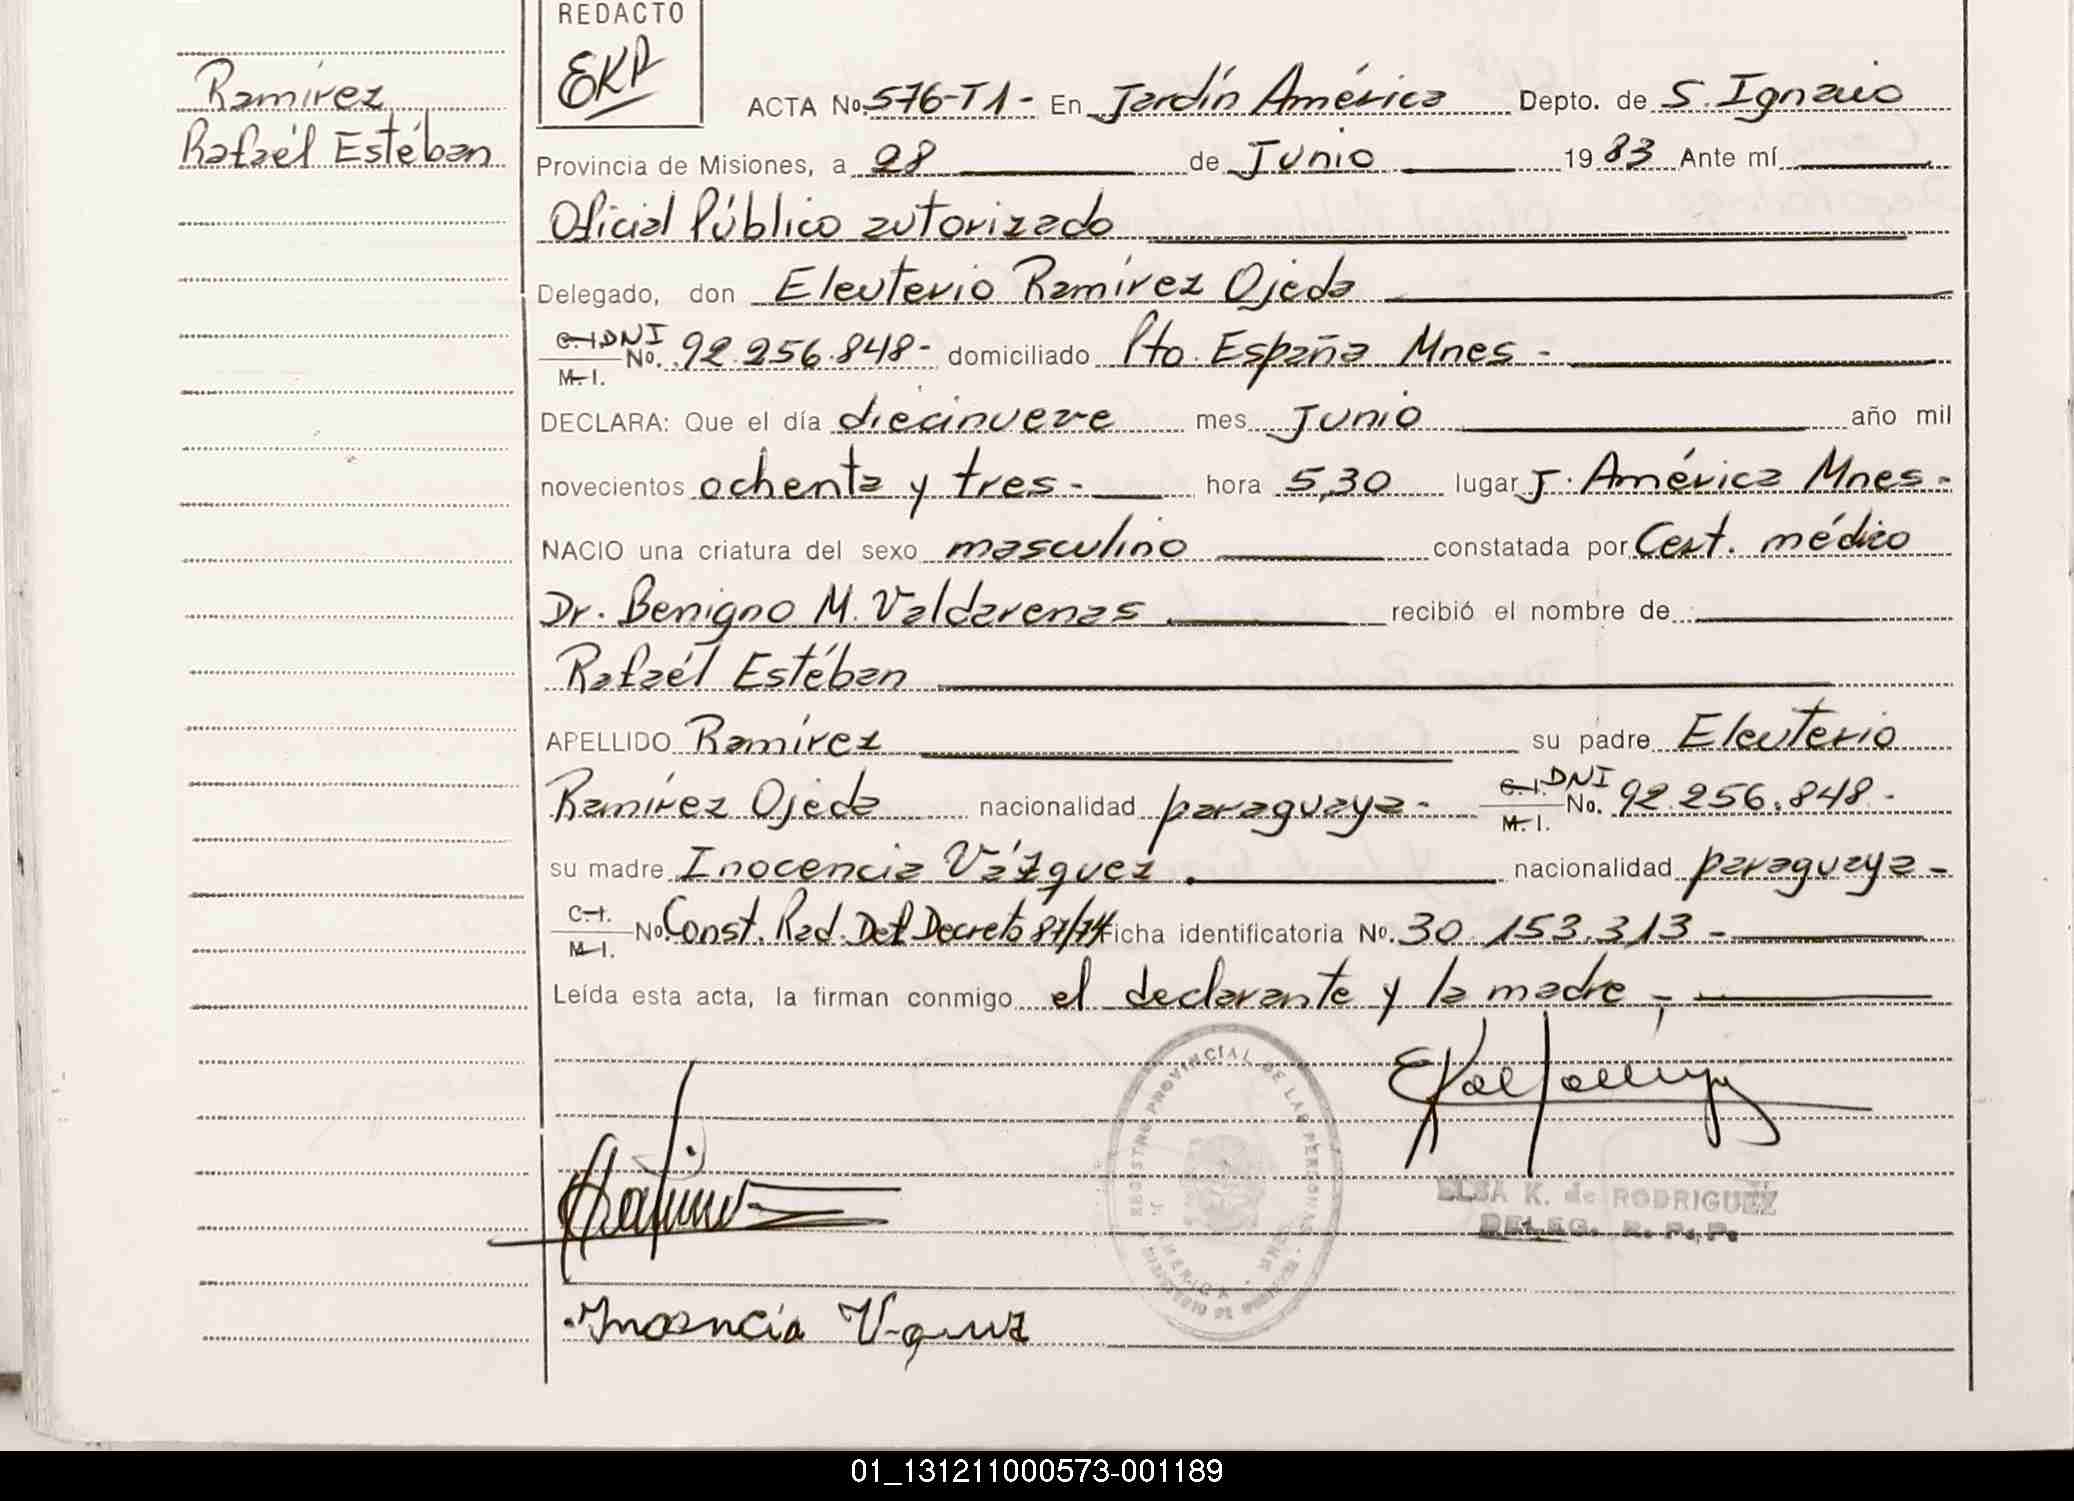 REDACTO
EKR
Ramírez
Rafaél Estéban
ACTA No. 576-T1- En Jardín América Depto. de S. Ignacio
Provincia de Misiones, a 28 de Junio 1983 Ante mí
Oficial Público autorizado
Delegado, don Eleuterio Ramírez Ojeda
C.I. DNI
M.I. No. 92.256.848- domiciliado Pto. España Mnes-
DECLARA: Que el día diecinueve mes Junio año mil
novecientos ochenta y tres- hora 5,30 lugar J. América Mnes-
NACIO una criatura del sexo masculino constatada por Cert. médico
Dr. Benigno M. Valdarenas recibió el nombre de
Rafaél Estéban
APELLIDO Ramírez su padre Eleuterio
Ramírez Ojeda nacionalidad paraguaya- C.I. DNI M.I. No. 92.256.848-
su madre Inocencia Vázquez. nacionalidad paraguaya-
C.I. M.I. No. Const. Rad. Def. Decreto 87/74 Ficha identificatoria No. 30.153.313-
Leída esta acta, la firman conmigo el declarante y la madre,-
REGISTRO PROVINCIAL DE LAS PERSONAS
J. AMERICA - MNES.
ELSA K. de RODRIGUEZ
DELEG. R. P. P.
Inocencia
01_131211000573-001189